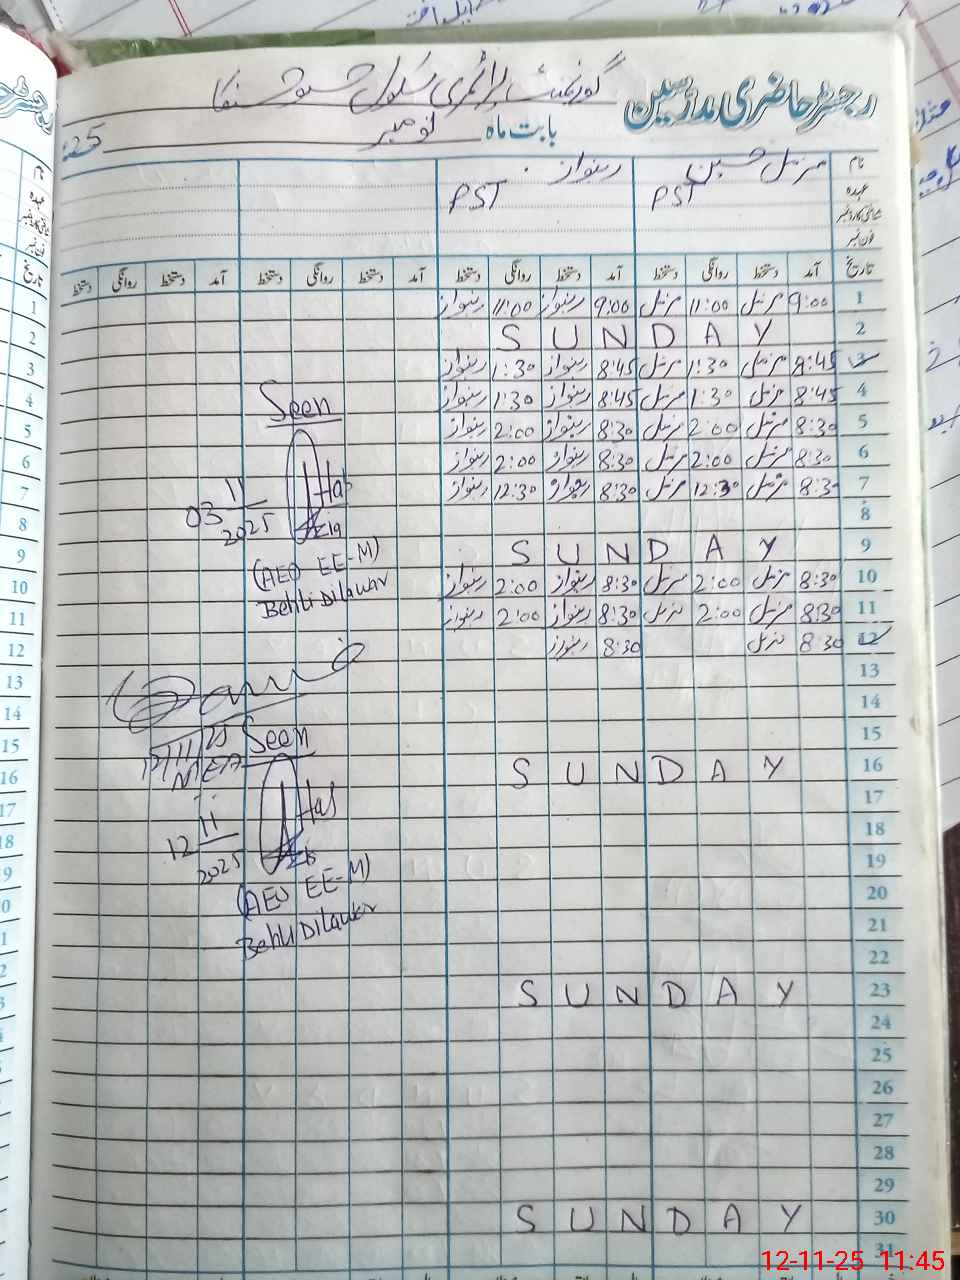 رجسٹر حاضری مدرسین گورنمنٹ پرائمری سکول
بابت ماہ نومبر 25ء
نام مزمل حسین ربنواز
عہدہ PST PST
شناختی کارڈ نمبر
فون نمبر
تاریخ آمد دستخط روانگی دستخط آمد دستخط روانگی دستخط آمد دستخط روانگی دستخط آمد دستخط روانگی دستخط
1 9:00 مزمل 11:00 مزمل 9:00 ربنواز 11:00 ربنواز
2 SUNDAY
3 8:45 مزمل 1:30 مزمل 8:45 ربنواز 1:30 ربنواز
4 8:45 مزمل 1:30 مزمل 8:45 ربنواز 1:30 ربنواز
5 8:30 مزمل 2:00 مزمل 8:30 ربنواز 2:00 ربنواز
6 8:30 مزمل 2:00 مزمل 8:30 ربنواز 2:00 ربنواز
7 8:30 مزمل 12:30 مزمل 8:30 ربنواز 12:30 ربنواز
8
9 SUNDAY
10 8:30 مزمل 2:00 مزمل 8:30 ربنواز 2:00 ربنواز
11 8:30 مزمل 2:00 مزمل 8:30 ربنواز 2:00 ربنواز
12 8:30 مزمل 8:30 ربنواز
13
14
15
16 SUNDAY
17
18
19
20
21
22
23 SUNDAY
24
25
26
27
28
29
30 SUNDAY
31
Seen
03 11 2025
(AEO EE-M)
Behli Dilawar
12/11/25
MEA
Seen
12 11 2025
(AEO EE-M)
Behli Dilawar
12-11-25 11:45